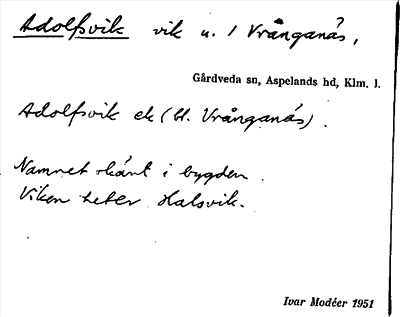 Adolfsvik vik u. / Vrånganäs,
Gårdveda sn, Aspelands hd, Klm. l.
Adolfsvik ek (bl. Vrånganäs).
Namnet okänt i bygden.
Viken heter Halsvik.
Ivar Modéer 1951